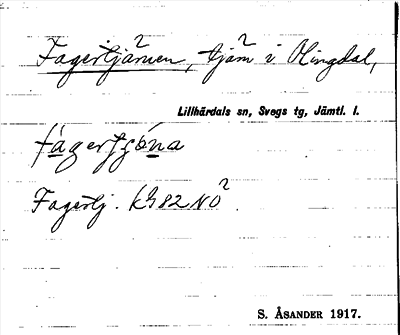 Fagertjärnen, tjärn i Olingdal,
Lillhärdals sn, Svegs tg, Jämtl. l.
fágertjó̱na
Fagertj. k982NO?
S. ÅSANDER 1917.